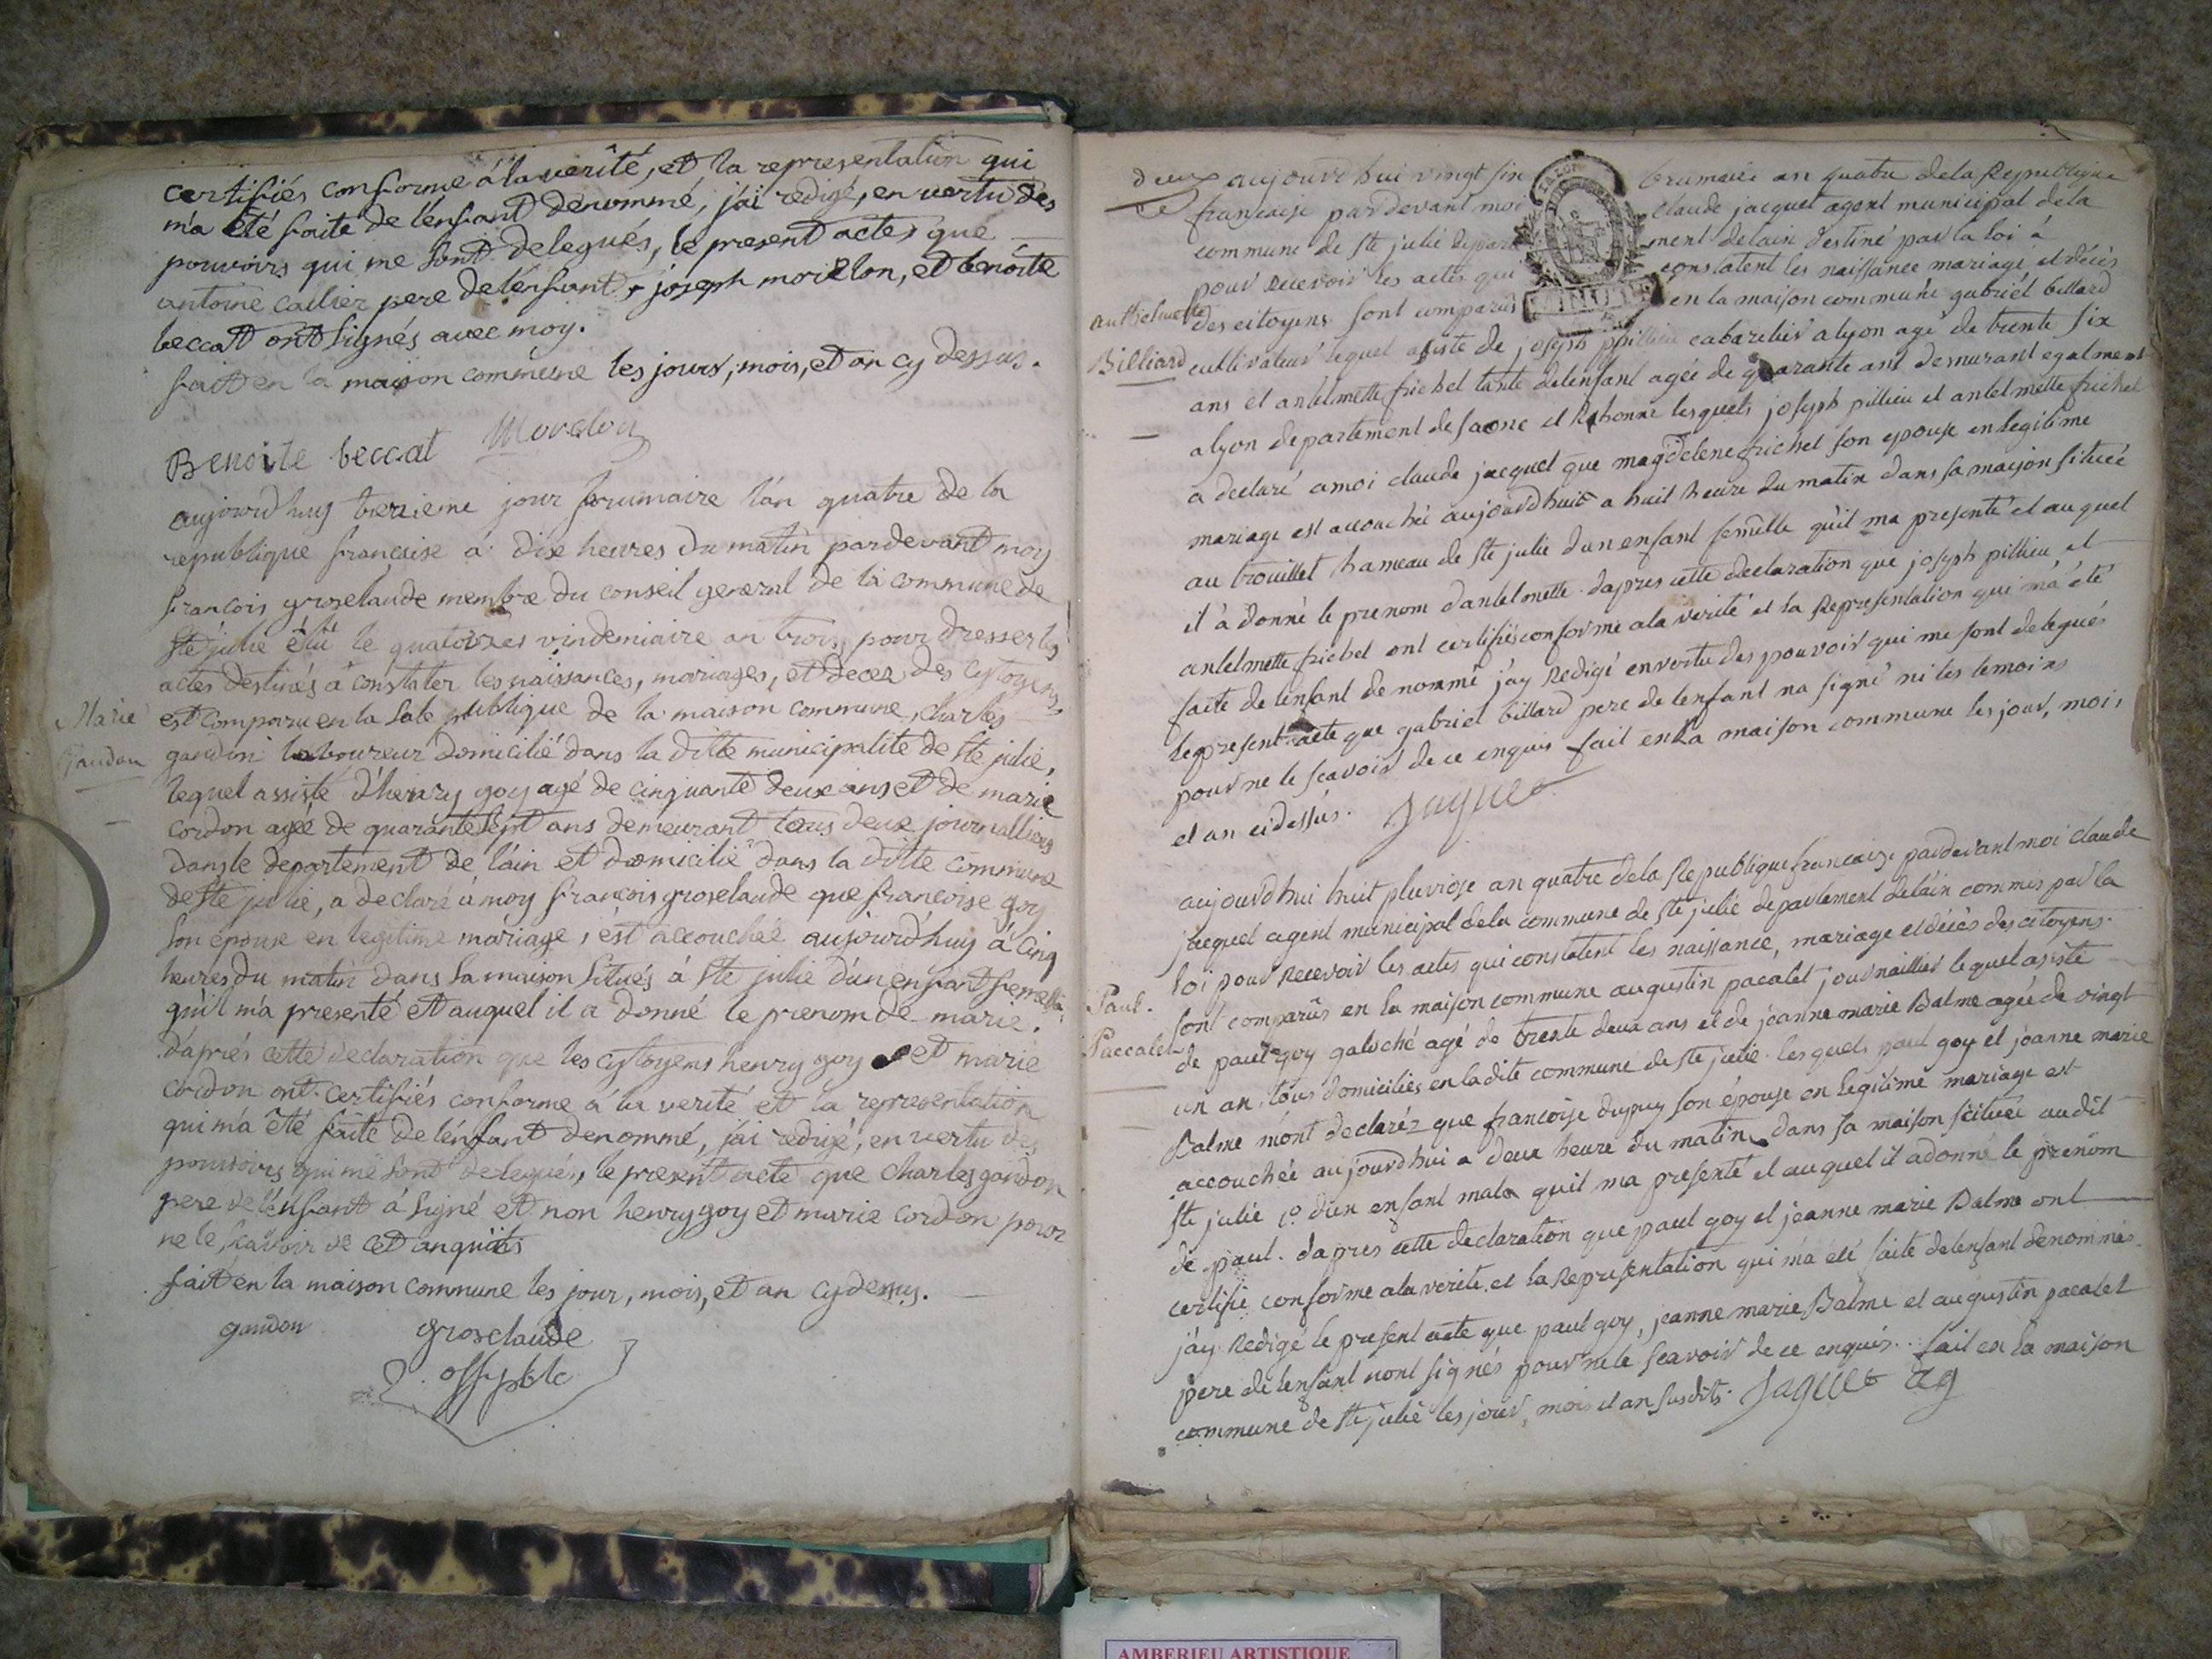 certifiés conforme á la verîté, et la representation qui
m'a été faite de l'enfant dénommé, j'ái redigé, en vertu des
pouvoirs qui me sont delegués, le present actes que
antoine cailier pere de l'énfant, joseph morellon, et benoite
beccat ont signés avec moy.
fait en la maison commune les jours, mois, et an cy dessus.
Benoite beccat Morelon
aujourd'huy treizieme jour brumaire l'án quatre de la
republique francaise á dix heures du matin pardevant moy
francois groselaude membre du conseil general de la commune de
Ste julie élû le quatorzes vindemiaire an trois, pour dresser les
actes destinés á constater les naissances, mariages, et deces des cytoyens,
est comparu en la sale publique de la maison commune, charles
Marie
gandon laboureur domicilié dans la ditte municipalité de Ste julie,
Gandon
lequel assisté d'henry goy agé de cinquante deux ans et de marie
cordon agée de quarante sept ans demeurant tous deux journalliers
dans le departement de l'áin et domicilié dans la ditte commune
de Ste julie, a declaré á moy francois groselaude que francoise goy
son épouse en legitime mariage, ést accouchée aujourd'huy á cinq
heures du matin dans sa maison situés á Ste julie d'un enfant femelle
qu'il m'a presenté et auquel il a donné le prenom de marie.
d'apriés cette declaration que les cytoyens henry goy et marie
cordon ont certifiés conforme á la verité et la representation
qui m'a été faite de l'énfant denommé, j'ai redigé, en vertu des
pouvoirs qui me sont delegués, le present acte que Charles gandon
pere de l'énfant á signé et non henry goy et marie cordon pour
ne le savoir de cet enquits
fait en la maison commune les jour, mois, et an cy dessus.
gandon groseclaude
off. pblc
deux aujourd'hui vingt six brumaire an quatre de la Republique
francaise pardevant moi Claude jacquet agent municipal de la
commune de Ste julie departement de lain destiné par la loi à
pour recevoir les actes qui constatent les naissance mariage et décés
des citoyens sont comparus en la maison commune gabriel billard
MINUTE
Anthelmette
Billiard
cultivateur lequel asisté de joseph pillieu cabaretier a lyon agé de trente six
ans et antelmette frichet tante de lenfant agée de quarante ans demurant egalment
a lyon departement de saone et Rhonne lesquels joseph pillieu et antelmette frichet
a declaré a moi claude jacquet que magdelene frichet son epouse en legitime
mariage est accouchée aujourdhuit a huit heure du matin dans sa maison situeé
au trouillet hameau de Ste julie dun enfant femelle quil ma presenté et au quel
il á donné le prenom dantelmette. dapres cette declaration que joseph pillieu et
antelmette frichet ont certifiés conforme a la verité et la Representation qui má été
faite de lenfant denommé j'ay Redigé en vertu des pouvoir qui me sont delegués
le present acte que gabriel billard pere de lenfant na signé ni les temoins
pour ne le scavoir de ce enquis fait en la maison commune les jour, mois
et an ci dessus. Jaquet
aujourd'hui huit pluviose an quatre de la Republique francaise pardevant moi Claude
jacquet agent municipal de la commune de Ste julie departement delain commis par la
loi pour Recevoir les actes qui constatent les naissance, mariage et décés des citoyens.
sont comparûs en la maison commune augustin pacalet journaillier lequel asisté
Paul.
Paccalet
de paul goy galoché agé de trente deux ans et de jeanne marie Balme agée de vingt
un an, tous domiciliés en la dite commune de Ste julie. les quels paul goy et jeanne marie
Balme m'ont declaréz que francoise dupuy son épouse en legitime mariage est
accouchée aujourdhui a deux heure du matin dans sa maison scituée audit
Ste julie dun enfant male quil ma presenté et auquel il a donné le prenom
de paul. dapres cette declaration que paul goy et jeanne marie Balme ont
certifié conforme a la verite et la Representation qui má été faite de lenfant denommés
j'ay Redigé le present acte que paul goy, jeanne marie Balme et augustin pacalet
pere de lenfant nont signés pour ne le scavoir de ce enquis. fait en la maison
commune de Ste julie les jour, mois et an susdits. Jaquet ag
AMBERIEU ARTISTIQUE